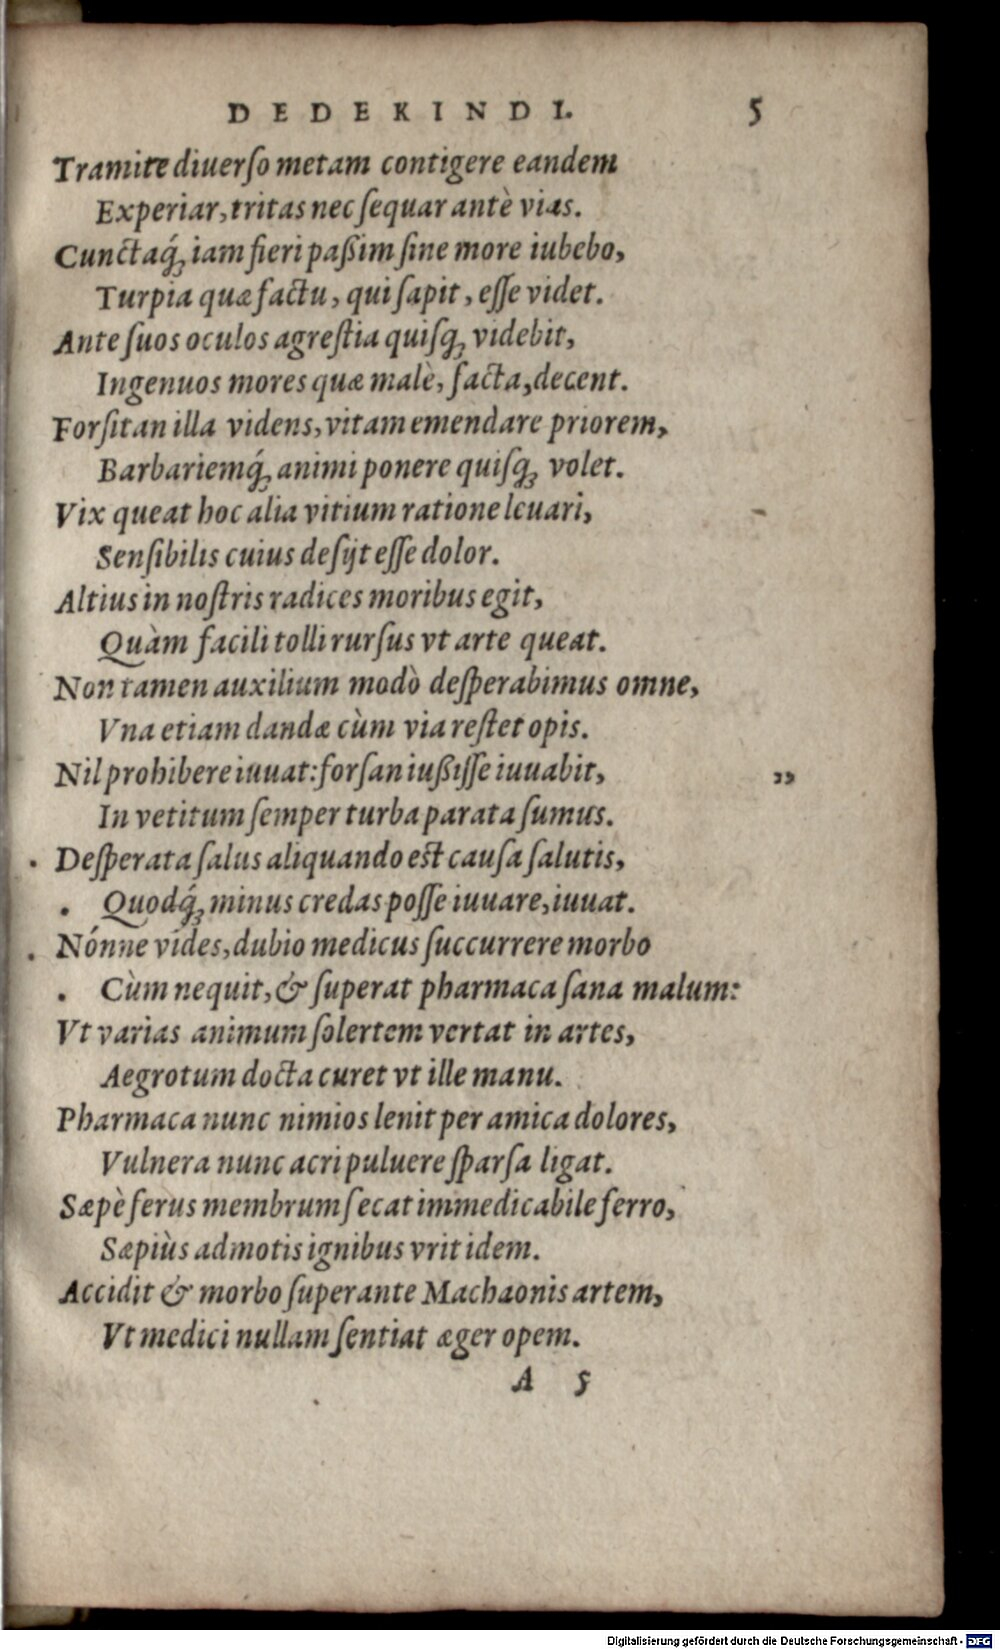 DEDEKINDI. 5
Tramite diuerſo metam contigere eandem
Experiar, tritas nec ſequar antè vias.
Cunctaq́; iam fieri paßim ſine more iubebo,
Turpia quæ factu, qui ſapit, eſſe videt.
Ante ſuos oculos agreſtia quiſq; videbit,
Ingenuos mores quæ malè, facta, decent.
Forſitan illa videns, vitam emendare priorem,
Barbariemq́; animi ponere quiſq; volet.
Vix queat hoc alia vitium ratione leuari,
Senſibilis cuius deſijt eſſe dolor.
Altius in noſtris radices moribus egit,
Quàm facili tolli rurſus vt arte queat.
Non tamen auxilium modò deſperabimus omne,
Vna etiam dandæ cùm via reſtet opis.
Nil prohibere iuuat: forſan iußiſſe iuuabit, ”
In vetitum ſemper turba parata ſumus.
Deſperata ſalus aliquando eſt cauſa ſalutis,
Quodq́; minus credas poſſe iuuare, iuuat.
Nónne vides, dubio medicus ſuccurrere morbo
Cùm nequit, & ſuperat pharmaca ſana malum:
Vt varias animum ſolertem vertat in artes,
Aegrotum docta curet vt ille manu.
Pharmaca nunc nimios lenit per amica dolores,
Vulnera nunc acri puluere ſparſa ligat.
Sæpè ferus membrum ſecat immedicabile ferro,
Sæpiùs admotis ignibus vrit idem.
Accidit & morbo ſuperante Machaonis artem,
Vt medici nullam ſentiat æger opem.
A 5
Digitalisierung gefördert durch die Deutsche Forschungsgemeinschaft - DFG